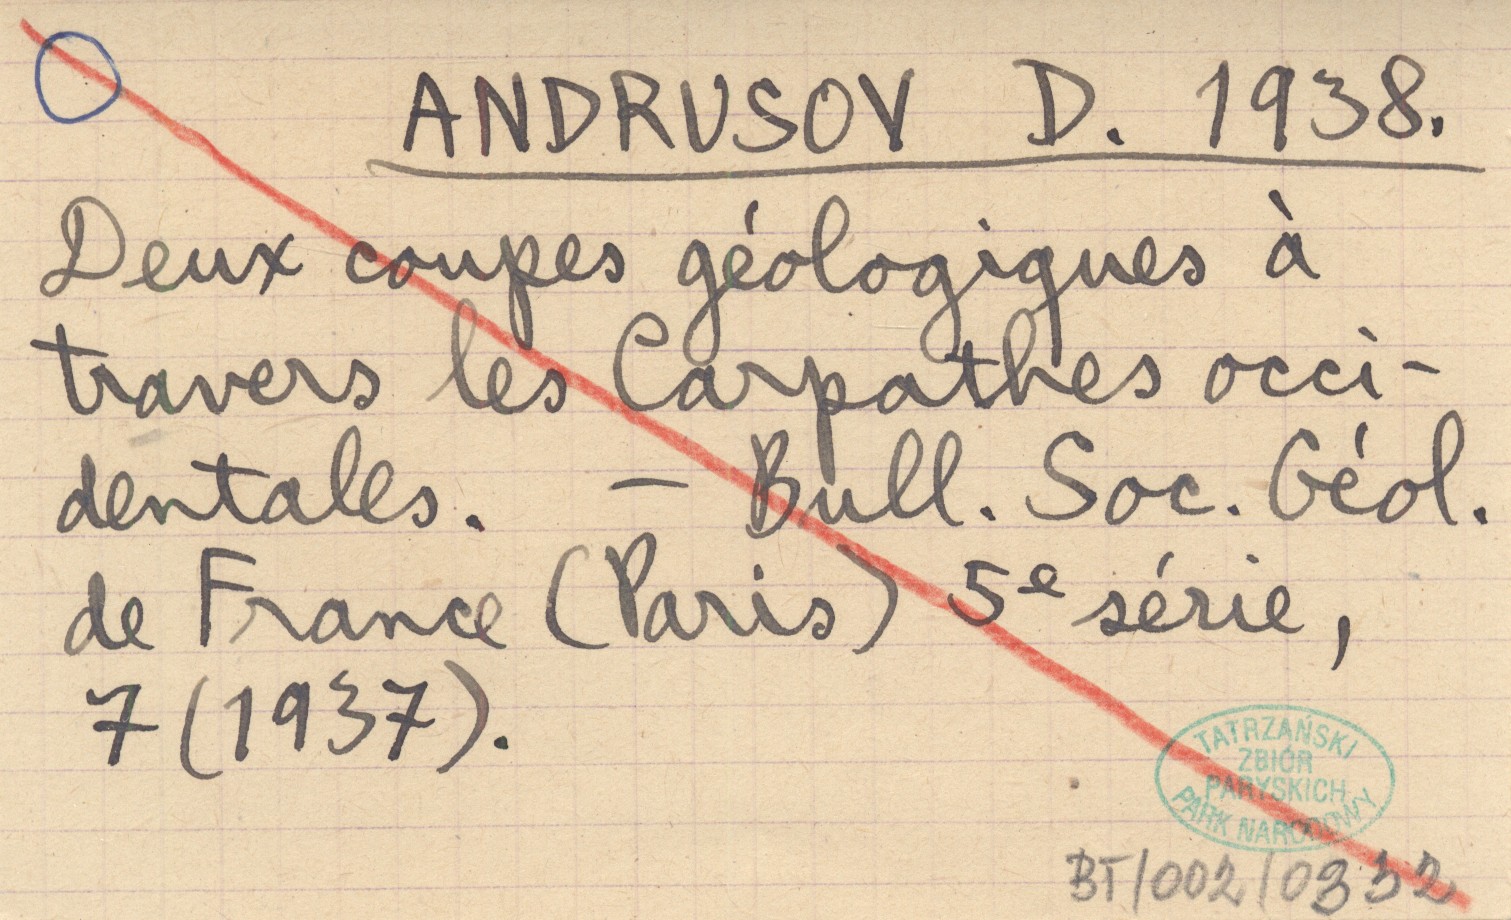 ANDRUSOV D. 1938.
Deux coupes géologiques à
travers les Carpathes occi-
dentales. — Bull. Soc. Géol.
de France (Paris) 5e série,
7 (1937).
TATRZAŃSKI
ZBIÓR
PARYSKICH
PARK NARODOWY
BT/002/0332